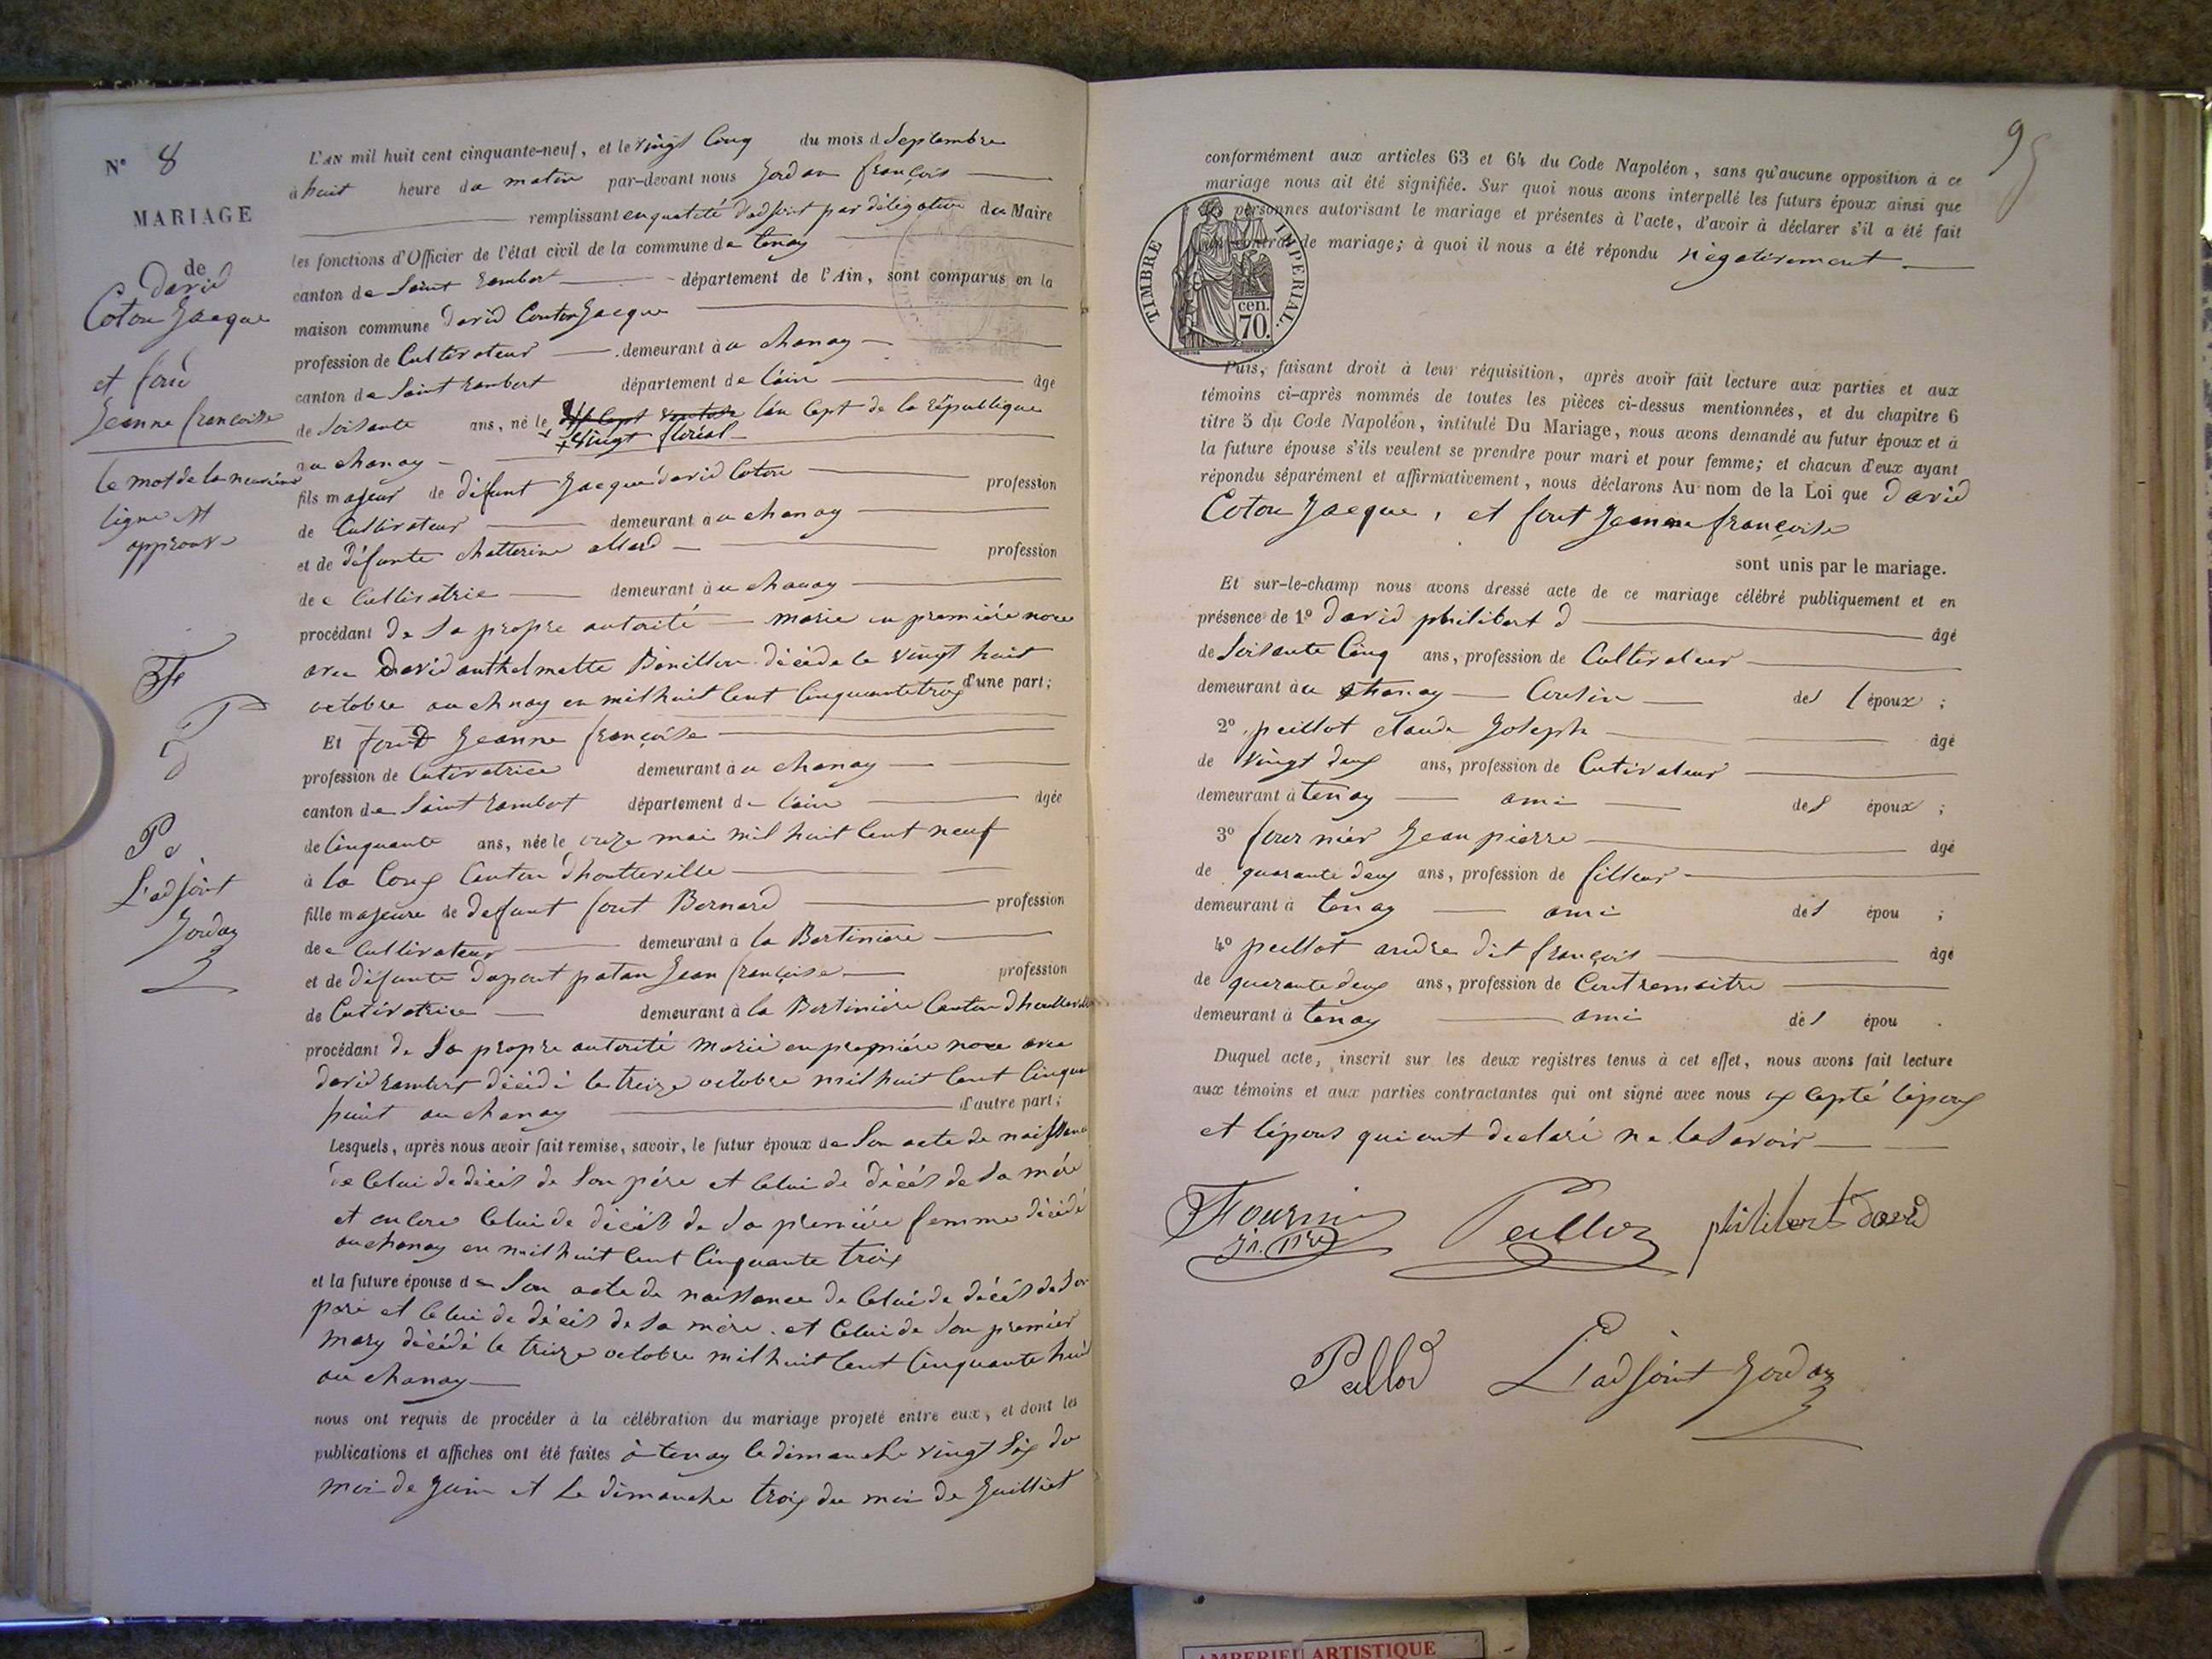 N° 8
MARIAGE
de
david
Coton Jacque
et foré
Jeanne francoise
le mot de la neuvième
ligne est
approuve
L'adjoint
Jordan
L'AN mil huit cent cinquante-neuf, et le vingt Cinq du mois d Septembre
à huit heure du matin par-devant nous Jordan françois
remplissant en qualité d'adjoint par délégation du Maire
les fonctions d'Officier de l'état civil de la commune de tenay
canton de Saint Rambert département de l'Ain, sont comparus en la
maison commune David Couton Jacque
profession de Cultivateur demeurant à u chanay
canton de Saint Rambert département de l'ain âgé
de Soisante ans, né le l'an Sept de la république
+ vingt floréal
au chanay
fils majeur de défunt Jacque david Coton profession
de Cultivateur demeurant à u chanay
et de défunte chatterine allard profession
de e Cultivatrie demeurant à u chanay
procédant de Sa propre autorité marie en première noce
avec David anthelmette Bénillon décéda le vingt huit
octobre au chnay en mil huit Cent Cinquante troij d'une part;
Et fort Jeanne françoise
profession de Cutivatrice demeurant à u chanay
canton de Saint Rambert département de l'ain âgée
de Cinquante ans, née le onze mai mil huit Cent neuf
à la Coux Canton dhautteville
fille majeure de defunt fort Bernard profession
de e Cultivateur demeurant à la Bertiniere
et de défunte dupont patan Jean françoise profession
de Cutivatrice demeurant à la Bertiniére Canton dhautteville
procédant de Sa propre autorité Marié en première noce avec
david rambert décédé le treize octobre mil huit Cent Cinquan
huit au chanay d'autre part;
Lesquels, après nous avoir fait remise, savoir, le futur époux de Son acte de naissance
de Celui de décés de Son pére et Celui de décés de Sa mére
et encore Celui de décés de Sa première femme décédé
au chanay en mil huit Cent Cinquante troix
et la future épouse de Son acte de naissance de Celui de décés de Son
pére et Celui de décés de Sa mére et Celui de Son premier
mary décédé le treize octobre mil huit Cent Cinquante huit
au chanay
nous ont requis de procéder à la célébration du mariage projeté entre eux, et dont les
publications et affiches ont été faites à tenay le dimanche vingt Six du
moi de Juin et Le dimanche troij du moi de Juilliet
95
conformément aux articles 63 et 64 du Code Napoléon, sans qu'aucune opposition à ce
mariage nous ait été signifiée. Sur quoi nous avons interpellé les futurs époux ainsi que
personnes autorisant le mariage et présentes à l'acte, d'avoir à déclarer s'il a été fait
contrat de mariage; à quoi il nous a été répondu négativement
TIMBRE IMPERIAL.
cen.
70.
Puis, faisant droit à leur réquisition, après avoir fait lecture aux parties et aux
témoins ci-après nommés de toutes les pièces ci-dessus mentionnées, et du chapitre 6
titre 5 du Code Napoléon, intitulé Du Mariage, nous avons demandé au futur époux et à
la future épouse s'ils veulent se prendre pour mari et pour femme; et chacun d'eux ayant
répondu séparément et affirmativement, nous déclarons Au nom de la Loi que david
Coton Jacque, et fort Jeanne françoise
sont unis par le mariage.
Et sur-le-champ nous avons dressé acte de ce mariage célébré publiquement et en
présence de 1° david philibert d âgé
de Soisante Cinq ans, profession de Cultivateur
demeurant à u chanay Cousin des époux ;
2° peillot claude Joseph âgé
de vingt deux ans, profession de Cutivateur
demeurant à tenay ami des époux ;
3° fournier Jean pierre âgé
de quarante deux ans, profession de filleur
demeurant à tenay ami des épou ;
4° peillot andre dit françois âgé
de quarante deux ans, profession de Contremaitre
demeurant à tenay ami des épou .
Duquel acte, inscrit sur les deux registres tenus à cet effet, nous avons fait lecture
aux témoins et aux parties contractantes qui ont signé avec nous excepté l'époux
et l'épous qui ont declaré ne le Savoir
Fournier
Jn. Pre
Peilloz
philibert david
Peillod
L'adjoint Jordan
AMBERIEU ARTISTIQUE